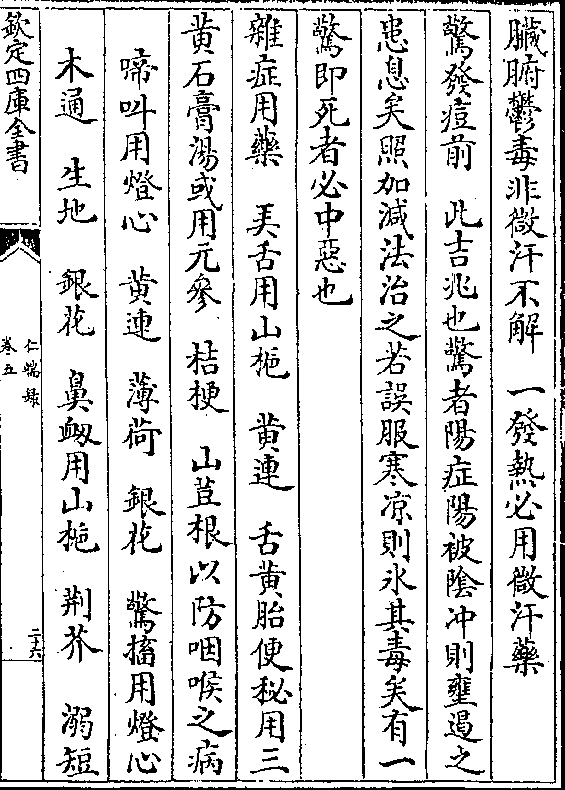 臓腑鬱毒非微汗不解　一發熱必用微汗藥
驚發痘前　此吉兆也驚者陽症陽被陰冲則壅遏之
患息矣照加減法治之若誤服寒凉則氷其毒矣有一
驚即死者必中惡也
雜症用藥　弄舌用山梔　黄連　舌黄胎便秘用三
黄石膏湯或用元參　桔梗　山荳根以防咽喉之病
啼呌用燈心　黄連　薄荷　銀花　驚搐用燈心
木通　生地　銀花　鼻衂用山梔　荆芥　溺短
欽定四庫全書
仁端録
卷五
二十六